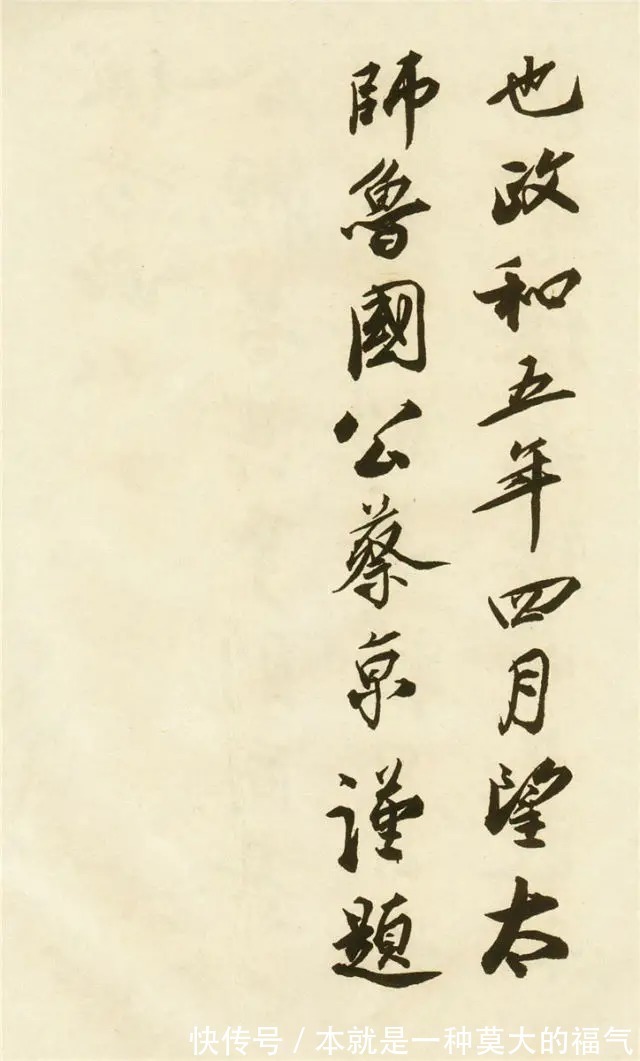 也政和五年四月望太
師魯國公蔡京謹題
快传号/本就是一种莫大的福气